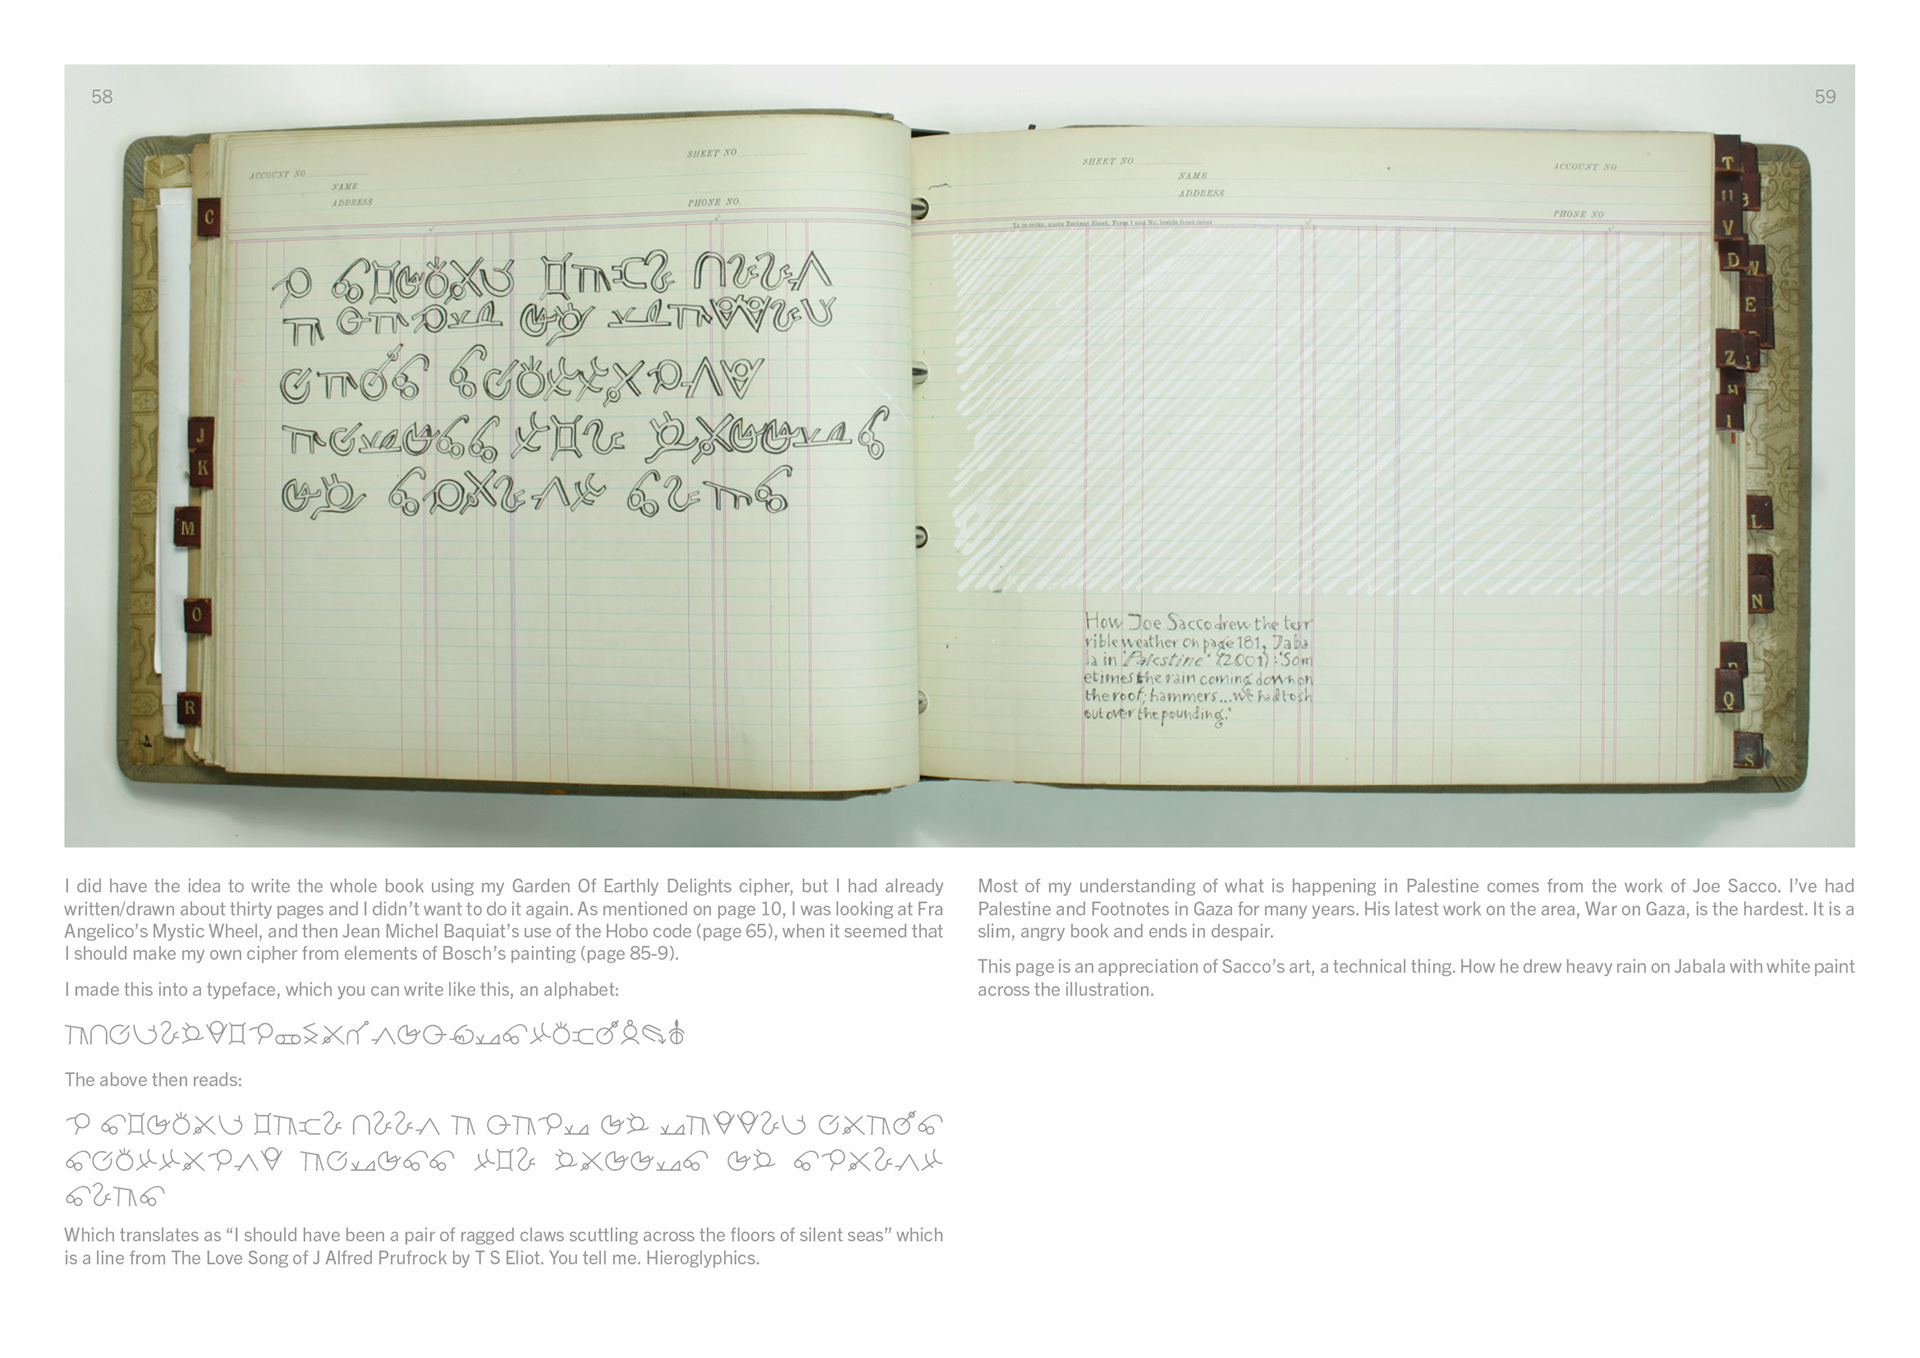 58
59
SHEET NO
ACCOUNT NO
NAME
ADDRESS
PHONE NO.
SHEET NO
ACCOUNT NO
NAME
ADDRESS
PHONE NO
C
J
K
M
O
R
T
U
B
V
D
W
E
Z
H
I
L
N
Q
S
How Joe Sacco drew the terr
rible weather on page 181, Jaba
la in 'Palestine' (2001): 'Som
etimes the rain coming down on
the roof; hammers...we had to sh
out over the pounding.'
I did have the idea to write the whole book using my Garden Of Earthly Delights cipher, but I had already
written/drawn about thirty pages and I didn’t want to do it again. As mentioned on page 10, I was looking at Fra
Angelico’s Mystic Wheel, and then Jean Michel Baquiat’s use of the Hobo code (page 65), when it seemed that
I should make my own cipher from elements of Bosch’s painting (page 85-9).
I made this into a typeface, which you can write like this, an alphabet:
The above then reads:
Which translates as “I should have been a pair of ragged claws scuttling across the floors of silent seas” which
is a line from The Love Song of J Alfred Prufrock by T S Eliot. You tell me. Hieroglyphics.
Most of my understanding of what is happening in Palestine comes from the work of Joe Sacco. I’ve had
Palestine and Footnotes in Gaza for many years. His latest work on the area, War on Gaza, is the hardest. It is a
slim, angry book and ends in despair.
This page is an appreciation of Sacco’s art, a technical thing. How he drew heavy rain on Jabala with white paint
across the illustration.